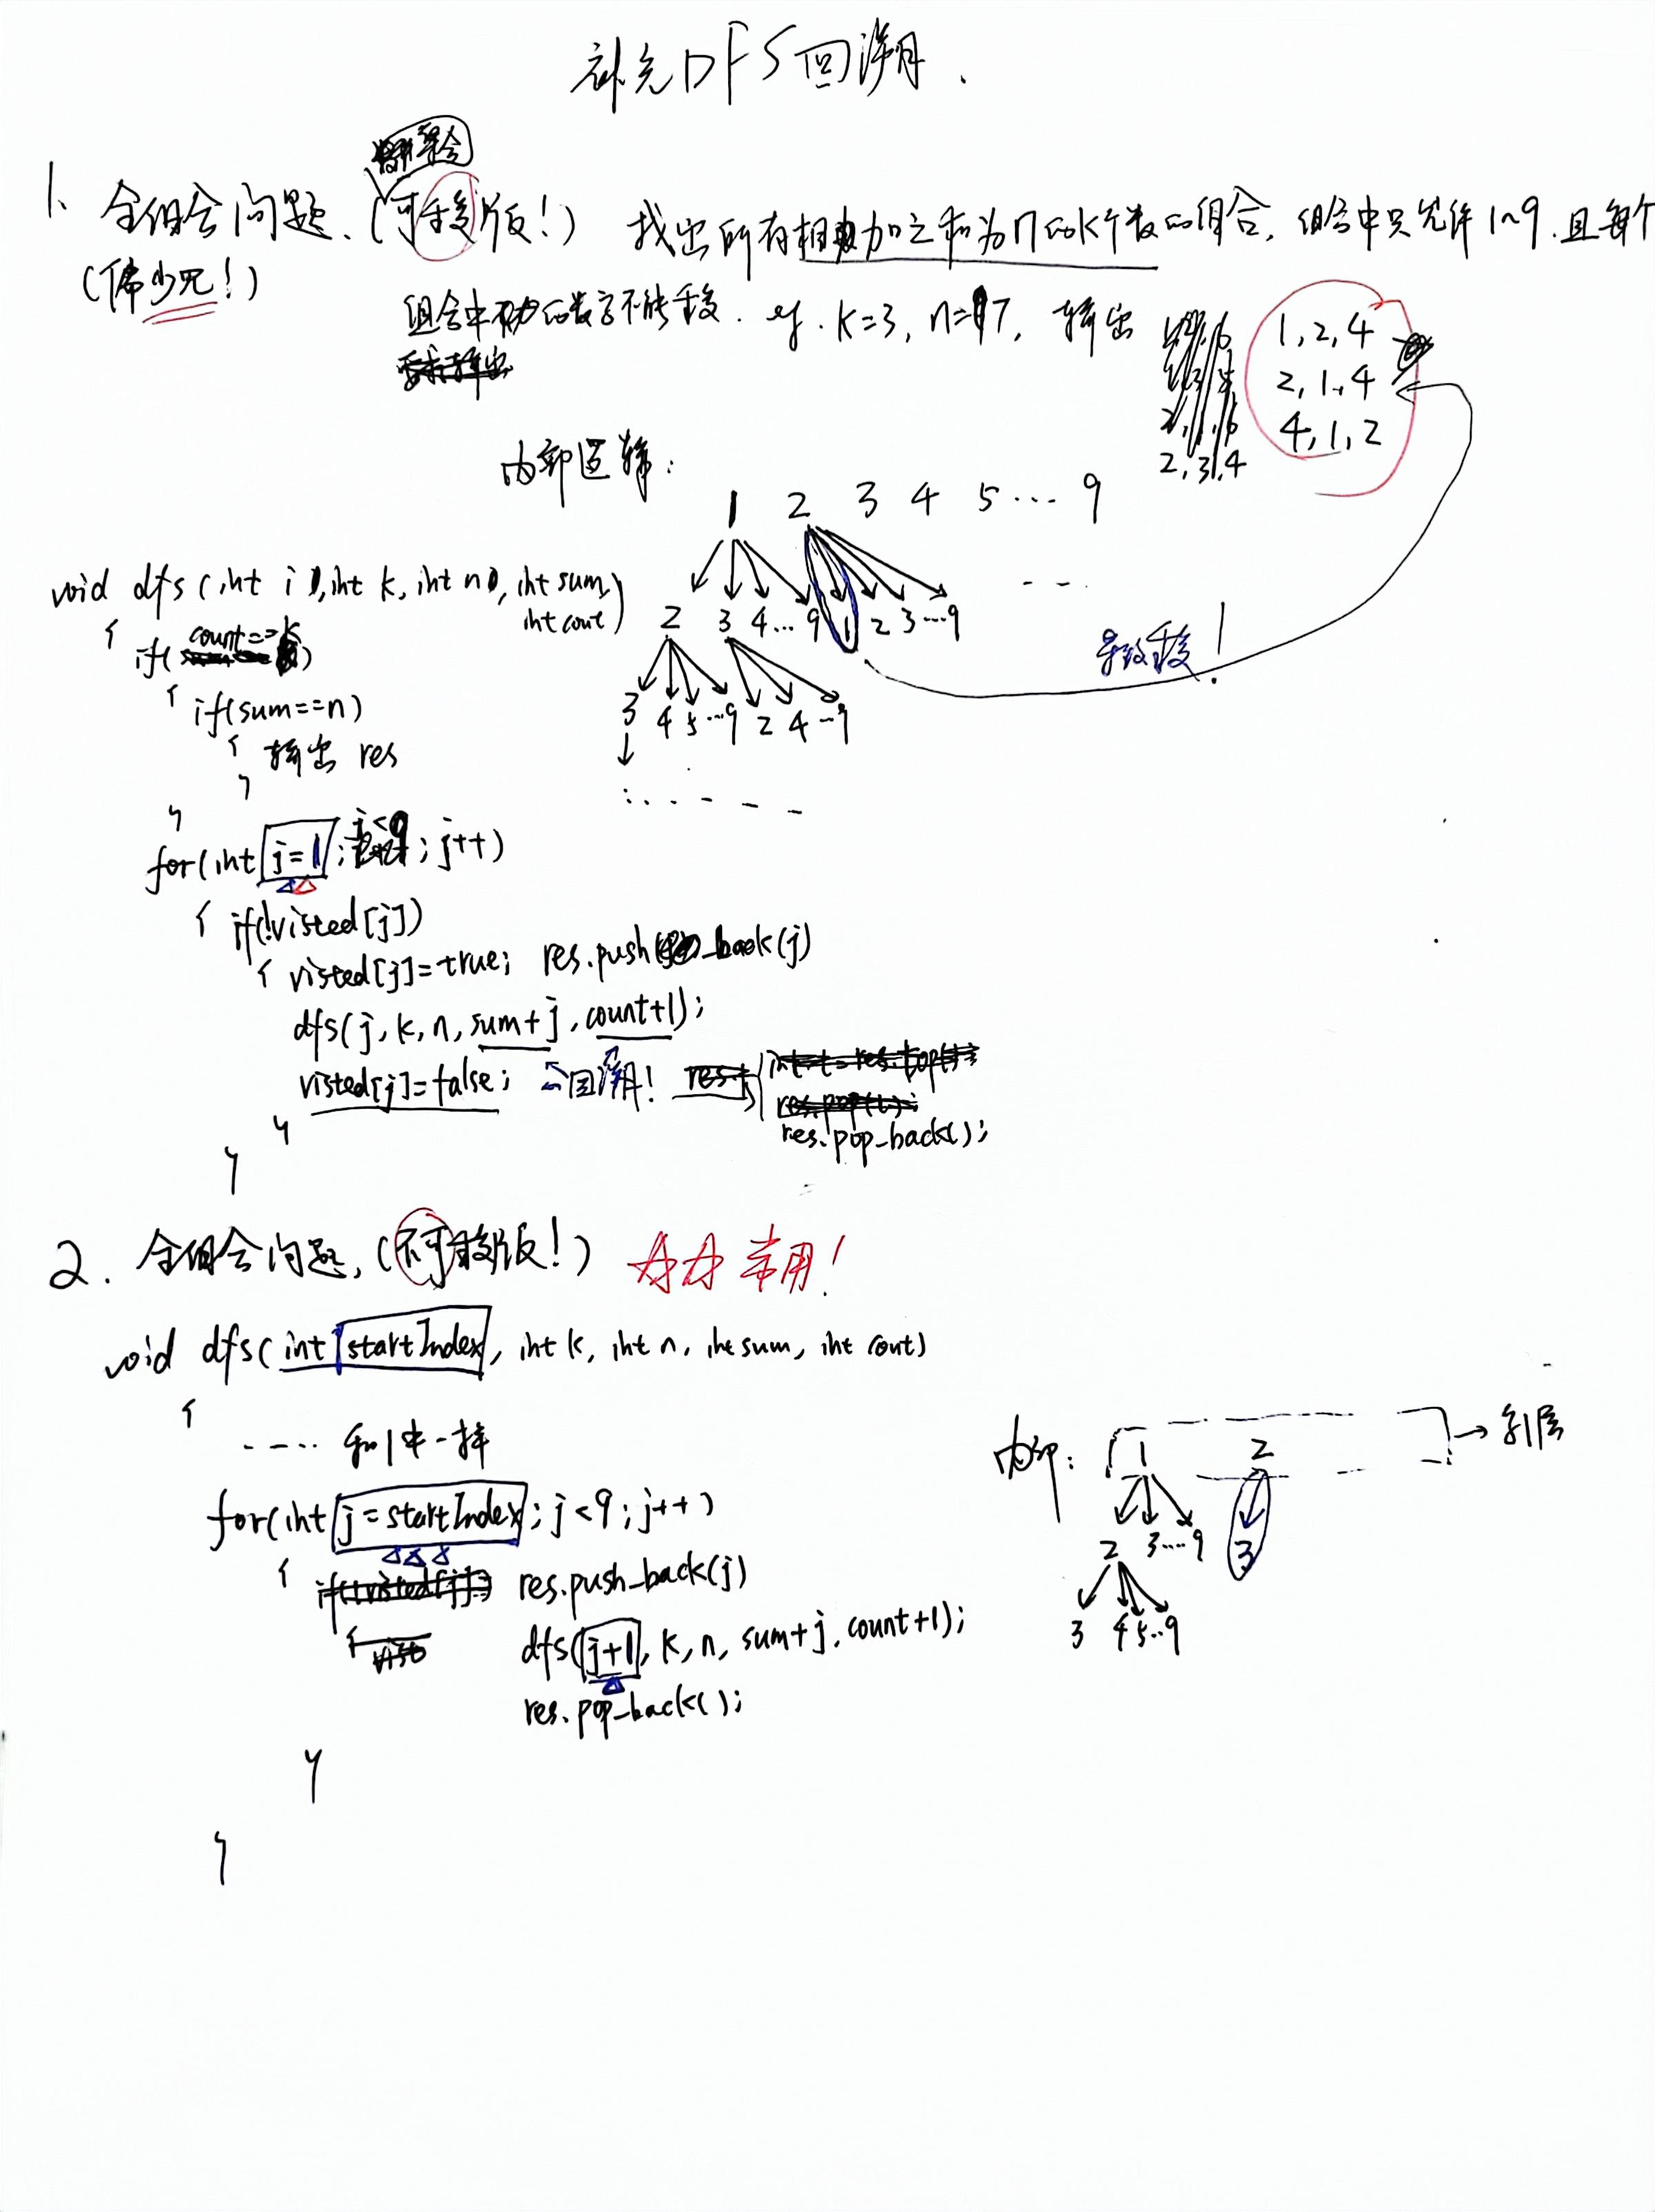 补充DFS回溯.
1. 全组合问题.(可重复版!) 找出所有相加之和为n的k个数的组合,组合中只允许1~9.且每个
(偏少见!) 组合中的数字不能重复. eg. k=3, n=7, 输出 1,2,4
2,1,4
4,1,2
2,3,4
内部逻辑:
1 2 3 4 5 ... 9
void dfs(int i, int k, int n, int sum,
int cout)
2 3 4... 9 1 2 3...9
导致重复!
{ if(count==k)
{ if(sum==n)
3 4 5...9 2 4 ...9
{ 输出 res
}
}
for(int j=1; j<9; j++)
{ if(!visted[j])
{ visted[j]=true; res.push_back(j)
dfs(j, k, n, sum+j, count+1);
visted[j]=false; ←回溯!
res.pop_back();
}
}
2. 全组合问题,(不可重复版!) 常用!
void dfs(int startIndex, int k, int n, int sum, int cout)
{
..... 和1中一样
内部: 1 2 → 引层
for(int j=startIndex; j<9; j++)
2 3....9 3
{ res.push_back(j)
3 4 5..9
dfs(j+1, k, n, sum+j, count+1);
res.pop_back();
}
}